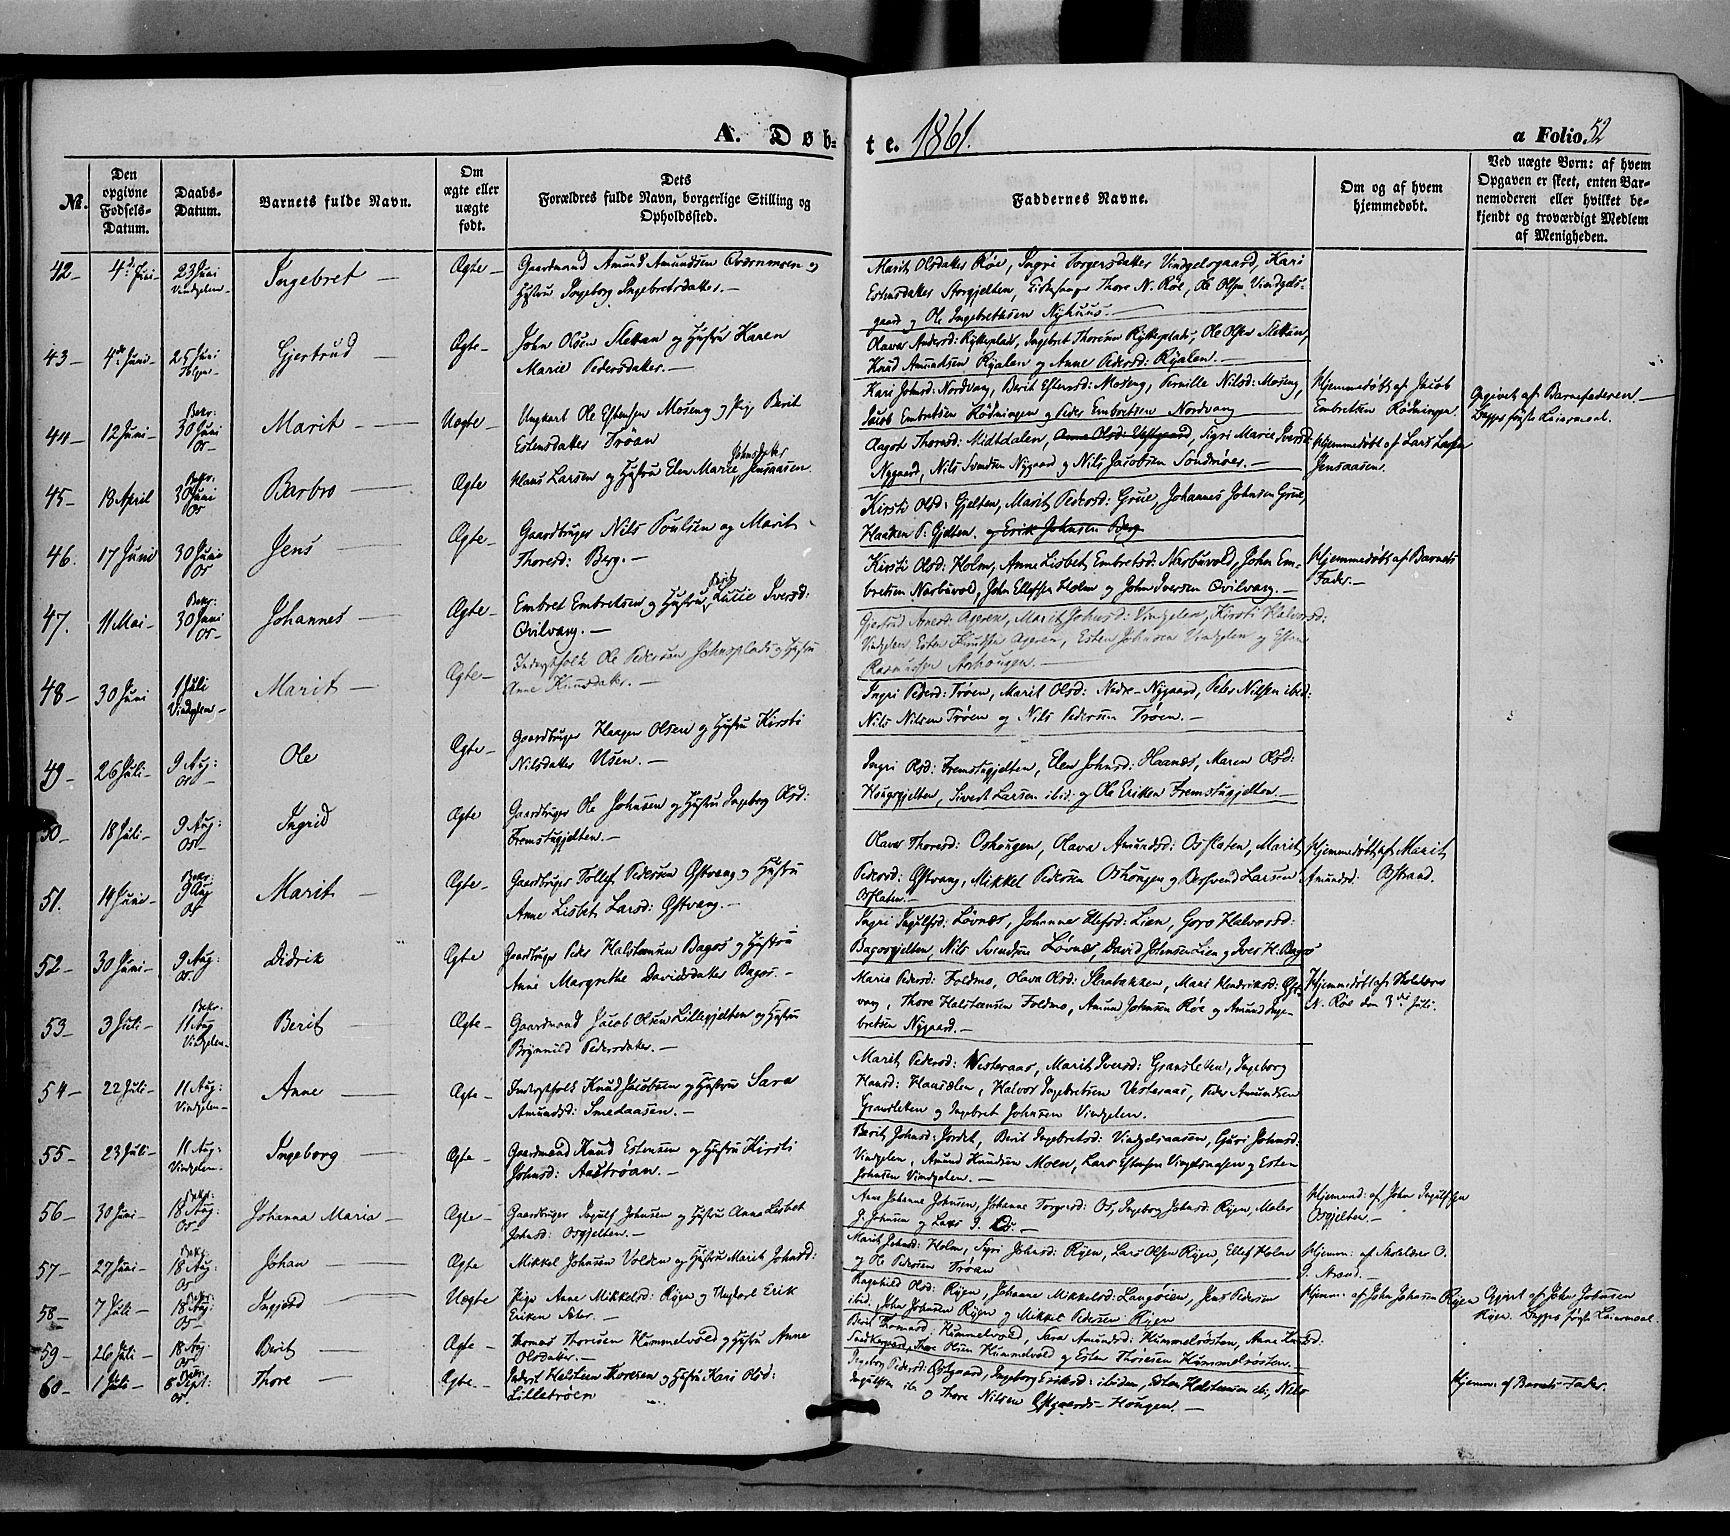 A. Døb-
te. 1861.
a Folio. 52
Nr.
Den opgivne Fødsels-Datum.
Daabs-Datum.
Barnets fulde Navn.
Om ægte eller uægte født.
Dets Forældres fulde Navn, borgerlige Stilling og Opholdssted.
Faddernes Navne.
Om og af hvem hjemmedøbt.
Ved uægte Børn: af hvem Opgaven er skeet, enten Barnemoderen eller hvilket bekjendt og troværdigt Medlem af Menigheden.
42- 4de Juni 23 Juni Vindgelen- Ingebret - Ægte- Gaardmand Amund Amundsen Qværnmoen og
Hustru Ingeborg Ingebretsdatter. -
Marit Olsdatter Røe, Ingri Torgersdatter Vindgelsgaard, Kari
Estensdatter Storgjelten, Kirkesanger Thore N. Røe, Ole Olsen Vindgels-
gaard og Ole Ingebretsen Nyhuus. -
43- 4de Juni- 25 Juni Gjertrud - Ægte- John Olsen Sletten og Hustru Karen
Marie Pedersdatter. -
Olava Andersd: Rytterplads, Ingebret Thoresen Rytterplads, Ole Olsen Sletten,
Knud Amundsen Ryalen og Anne Pedersd: Ryalen. -
44- 12 Juni- Bekr: 30 Juni Os- Marit - Uægte- Ungkarl Ole Estensen Moseng og Pige Berit
Estensdatter Trøan
Kari Johnsd: Nordvang, Berit Estensd: Moseng, Pernille Nilsd: Moseng,
Jacob Embretsen Rødningen og Peder Embretsen Nordvang
Hjemmedøbt af Jacob
Embretsen Rødningen
Opgivet af Barnefaderen -
Begges første Leiermaal.
45- 18 April Bekr: 30 Juni Os Barbro - Ægte Hans Larsen og Hustru Elen Marie Johnsdatter Jensaasen.
Aagot Thorsd: Midtdalen, Anne Olsd: Vestgaard, Sigri Marie Iversd:
Nygaard, Nils Svendsen Nygaard og Nils Jacobsen Sundmoen. -
Hjemmedøbt af Lars Larsen
Jensaasen.
46. 17 Juni 30 Juni Os Jens - Ægte- Gaardbruger Nils Poulsen og Marit
Thoresd: Berg. -
Kirsti Olsd: Gjelten, Marit Pedersd: Grue, Johannes Johnsen Grue,
Haaken P. Gjelten. og Erik Johnsen Berg
47. 11 Mai- Bekr: 30 Juni Os- Johannes - Ægte- Embret Embretsen og Hustru Berit Lucie Iversd:
Qvilvang. -
Kirsti Olsd: Holm, Anne Lisbet Embretsd: Narbuvold, John Em-
bretsen Narbuvold, John Ellefsen Holm og John Iversen Qvilvang. -
Hjemmedøbt af Barnets
Fader. -
48- 30 Juni 1 Juli Vindgelen- Marit - Ægte- Inderstfolk Ole Pedersen Johnsplads og Hustru
Anne Knudsdatter. -
Gjertrud Arnesd: Ageren, Marit Johnsd: Vindgelen, Kirsti Halvorsd:
Vindgelen, Esten Knudsen Ageren, Esten Johnsen Vindgelen og Esten
Rasmussen Aashougen. -
49- 26 Juli- 9 Aug: Os- Ole Ægte- Gaardbruger Haagen Olsen og Hustru Kirsti
Nilsdatter Usen. -
Ingri Pedersd: Trøen, Marit Olsd: Nedre-Nygaard, Peter Nilsen ibid:
Nils Nilsen Trøen og Nils Pedersen Trøen. -
50- 18 Juli- 9 Aug: Os- Ingrid Ægte Gaardbruger Ole Johnsen og Hustru Ingeborg Olsd:
Fremstugjelten -
Ingri Olsd: Fremstugjelten, Elen Johnsd: Haanæs, Maren Olsd:
Hougsgjelten, Sivert Larsen ibid: og Ole Eriksen Fremstugjelten -
51. 14 Juni- Bekr: 9 Aug Os Marit - Ægte- Gaardbruger Tollef Pedersen Østvang og Hustru
Anne Lisbet Larsd: Østvang. -
Olava Thoresd: Oshougen, Olava Amundsd: Osflaten, Marit
Pedersd: Østvang, Mikkel Pedersen Oshougen og Bersvend Larsen
Osflaten. -
Hjemmedøbt af Marit
Amundsd: Østvang.
52- 30 Juni- 9 Aug: Os Didrik Ægte Gaardbruger Peder Halstensen Bagos og Hustru
Anne Margrethe Davidsdatter Bagos. -
Ingri Ingulfsd: Løvnæs, Johanne Ellefsd: Lien, Goro Halvorsd:
Bagosgjelten, Nils Svendsen Løvnæs, David Johnsen Lien og Iver H. Bagos
53- 3 Juli- Bekr: 11 Aug Vindgelen- Berit - Ægte- Gaardmand Jacob Olsen Lillegjelten og Hustru
Brynnild Pedersdatter. -
Maria Pedersd: Foldmo, Olava Olsd: Staabakken, Mari Hendriksd: Øst-
vang, Thore Halstensen Foldmo, Amund Johnsen Røe og Amund Inge-
bretsen Nygaard. -
Hjemmedøbt af Skolelærer
N. Røe den 3die Juli.
54- 22 Juli- 11 Aug: Vindgelen- Anne - Ægte- Inderstfolk Knud Jacobsen og Hustru Sara
Amundsd: Smedaasen. -
Marit Pedersd: Vesteraas, Marit Iversd: Gransletten, Ingeborg
Hansd: Hansælen, Halvor Ingebretsen Vesteraas, Peder Amundsen
Gransletten og Ingebret Johnsen Vindgelen.
55- 23 Juli- 11 Aug: Vindgelen- Ingeborg - Ægte- Gaardmand Knud Estensen og Hustru Kirsti
Johnsd: Austrøan. -
Berit Johnsd: Jordet, Berit Ingebretsd: Vindgelsaasen, Guri Johnsd:
Vindgelen, Amund Knudsen Moen, Lars Estensen Vindgelsaasen og Esten
Johnsen Vindgelen. -
56- 30 Juni- Bekr: 18 Aug: Os- Johanna Maria - Ægte- Gaardbruger Ingulf Johnsen og Hustru Anne Lisbet
Johnsd: Osgjelten. -
Anne Johanne Johnsen, Johanne Torgersd: Os, Ingeborg Johnsd: Røen, Maler
J. Johnsen og Lars I. Os. -
Hjemmed: af John Ingulfsen
Osgjelten -
57- 27 Juni- Bekr: 18 Aug: Os Johan - Ægte Mikkel Johnsen Volden og Hustru Marit Johnsd:
Marit Johnsd: Holm, Siri Johnsd: Røen, Lars Olsen Røen, Ellef Holm
og Ole Pedersen Trøan
Hjemm: af Skolelærer O.
P. Strand. -
58- 7 Juli- Bekr: 18 Aug: Os- Ingjerd Uægte Pige Anne Mikkelsd: Røen og Ungkarl Erik
Eriksen Sæter.
Ragnhild Olsd: Røen, Johanne Mikkelsd: Langøien, Jens Pedersen
ibid, John Johnsen Røen og Mikkel Pedersen Røen
Hjemm: af John Johnsen Røen
Opgivet af John Johnsen
Røen. Begges første Leiermaal.
59- 26 Juli- 18 Aug: Os Berit - Ægte- Thomas Thoresen Hummelvold og Hustru Anne
Olsdatter. -
Berit Hummelvold, Sara Amundsd: Hummelrøsten, Anne Larsd:
Thore Olsen Hummelvold og Esten Thoresen Hummelrøsten. -
60- 1 Juli- Bekr: 8 Sept: Os. Thore - Ægte- Inderst Halsten Thoresen og Hustru Kari Olsd:
Lilletrøen
Ingeborg Pedersd: Østgaard, Ingeborg Eriksd: ibidem, Esten Halstensen ib:, Nils
Ingulfsen ib: og Thore Nilsen Østgaards-Hougen. -
Hjemm: af Barnets Fader.